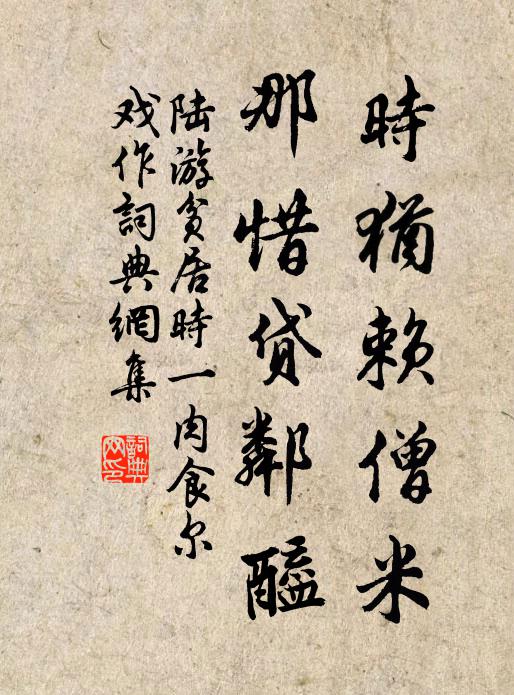 時猶賴僧米
那惜貸鄰醯
陆游貧居時一肉食尔
戏作詞典網集
詞典網印